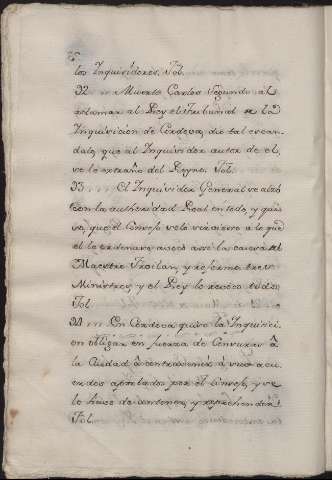 los Inquisidores. fol.
92 Muerto Carlos segundo al
aclamar al Rey el tribunal de la
Inquisicion de Cordova, dio tal escan-
dalo, que al Inquisidor autor de el,
se le extraño del Reyno. fol.
93 El Inquisidor General se alzo
con la authoridad Real en todo, y qui-
so, que el Consejo solo sirviese a lo que
el le ordenava, avoco asse la causa del
Maestro Froilan, y reformo tres
Ministros, y el Rey lo repuso todo.
fol.
94 En Cordova quiso la Inquisici-
on obligar en fuerza de Censuras â
la Ciudad â contravenir â unos acu-
erdos aprobados por el Consejo, y se
le hizo de contener, y reprehender.
fol.